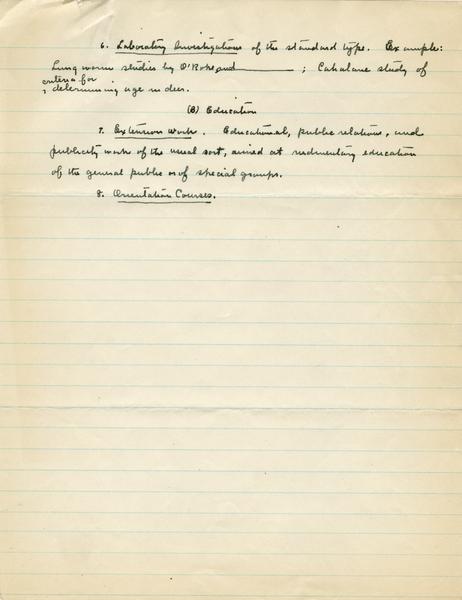 6. Laboratory Investigations of the standard type. Example:
Lung worm studies by O'Roke and ________ ; Cahalane study of
criteria for
determining age in deer.
(B) Education
7. Extension work. Educational, public relations, and
publicity work of the usual sort, aimed at rudimentary education
of the general public or of special groups.
8. Orientation Courses.